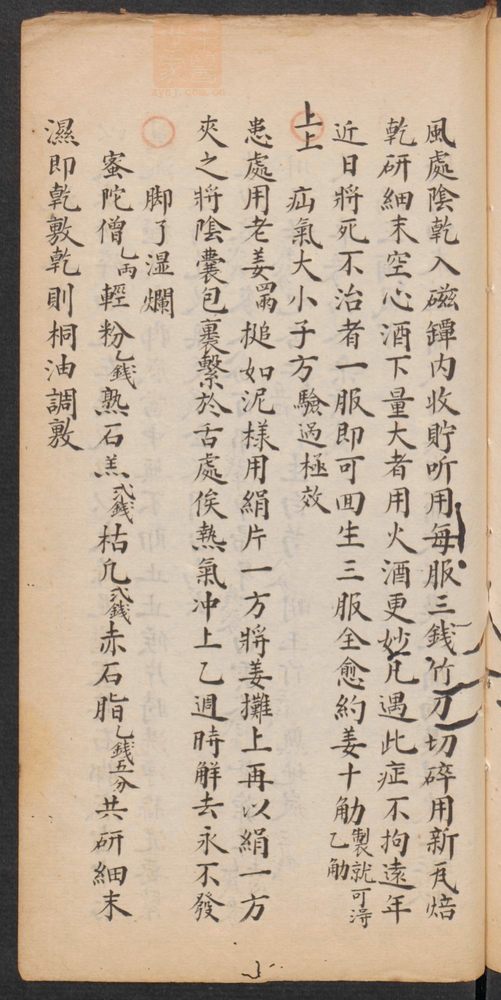 風處陰乾入磁罈内收貯听用每服三錢竹刀切碎用新瓦焙
乾研細末空心酒下量大者用火酒更妙凡遇此症不拘遠年
近日將死不治者一服即可回生三服全愈約姜十觔製就可淂乙觔
上上 疝氣大小子方驗過極效
患處用老姜四兩搥如泥樣用絹片一方將姜攤上再以絹一方
夾之將陰囊包裹繫於舌處俟熱氣冲上乙週時解去永不發
脚了湿爛
蜜陀僧乙兩輕粉乙錢熟石羔弍錢枯凢弍錢赤石脂乙錢五分共研細末
濕即乾敷乾則桐油調敷